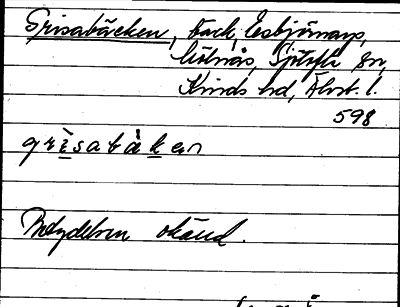 Grisabäcken, back, Esbjörnarp,
Sjötofta sn,
Kinds hd, Älvsb. l.
598
grìsabàkan
Betydelsen okänd.